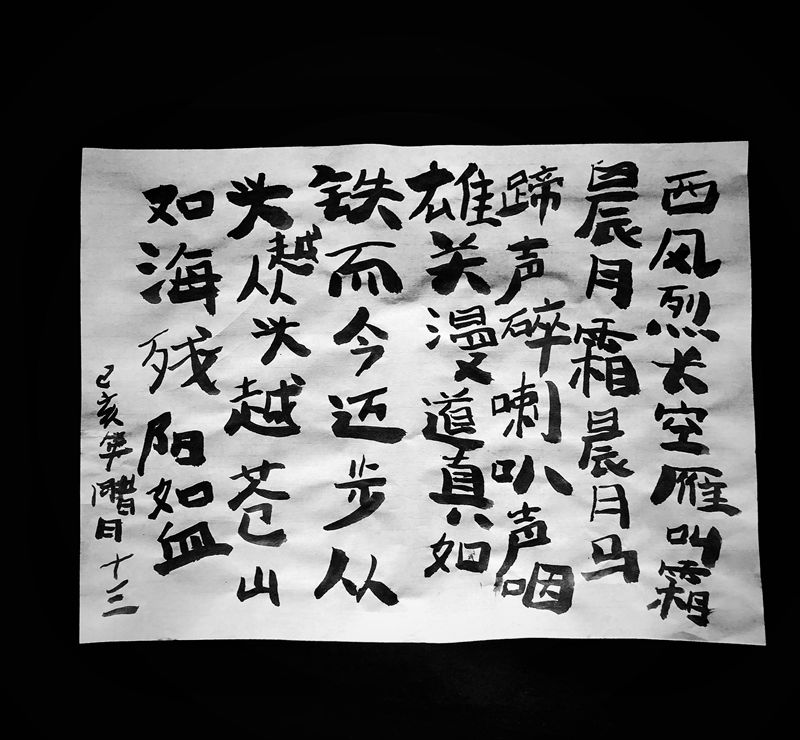 西风烈长空雁叫霜
晨月霜晨月马
蹄声碎喇叭声咽
雄关漫道真如
铁而今迈步从
头越从头越苍山
如海残阳如血
己亥年腊月十三